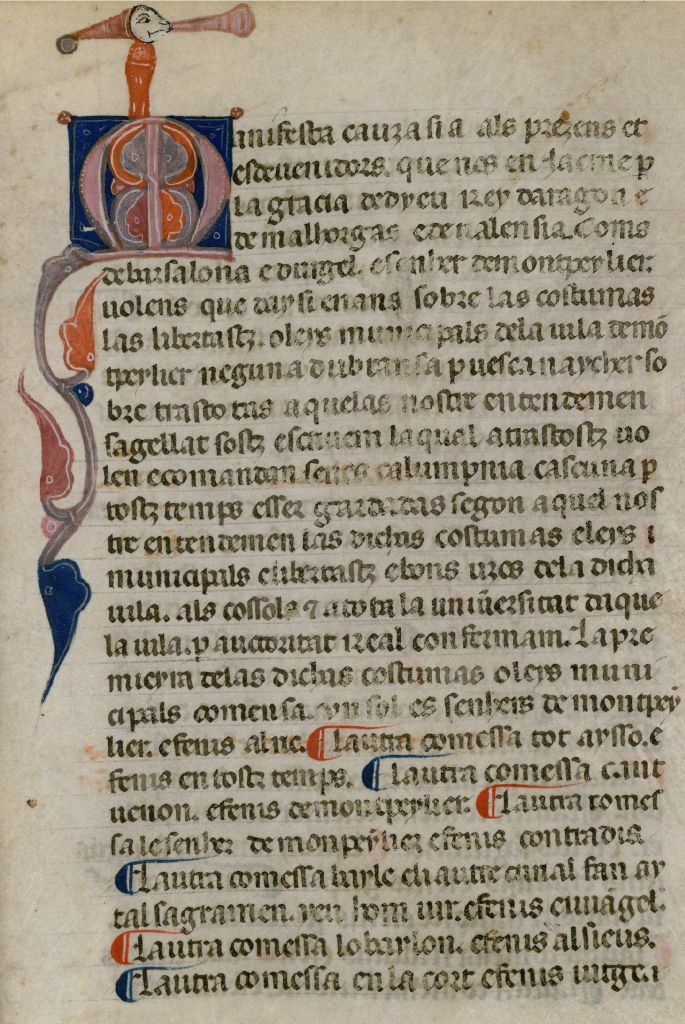 Manifesta cauza sia als prezens et
esdevenidors. que nos en Jacme p
la gracia de dyeu rey daragon e
de malhorgas e de valensia. Coms
de barsalona e durgel. e senher de montpeylier.
volens que daysi enans sobre las costumas
las libertastz. o leys municipals dela vila de mō
tpeylier neguna dubtansa puesca naycher so
bre trastotas aquelas nostre entendemen
sagellat sostz escrivem laqual atrastostz vo
len e comandan senes calumpnia cascuna p
tostz temps esser gardadas segon aquel nos
tre entendemen las dichas costumas e leys i
municipals e libertastz e bons uzes dela dicha
vila. als cossols ⁊ atota la univ̄ersitat daque
la vila. p auctoritat real confermam. La pre
mieyra delas dichas costumas o leys muni
cipals comensa. un sol es senhers de montpey
lier. e fenis alne. ¶ Lautra comessa tot aysso. e
fenis en tostz temps. ¶ Lautra comessa cant
venon. e fenis de montpeylier. ¶ Lautra comes
sa lo senher de monpeylier e fenis contradis.
¶ Lautra comessa bayle eli autre curial fan ay
tal sagramen. yeu hom iur. e fenis euvāgel.
¶ Lautra comessa lo baylon. e fenis al sieus.
¶ Lautra comessa en la cort e fenis iutge. i